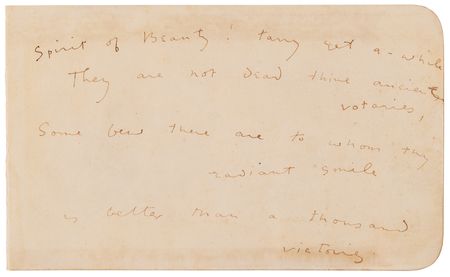 Spirit of Beauty! tarry yet a-while
They are not dead thine ancient
votaries,
Some few there are to whom thy
radiant smile
is better than a thousand
victories